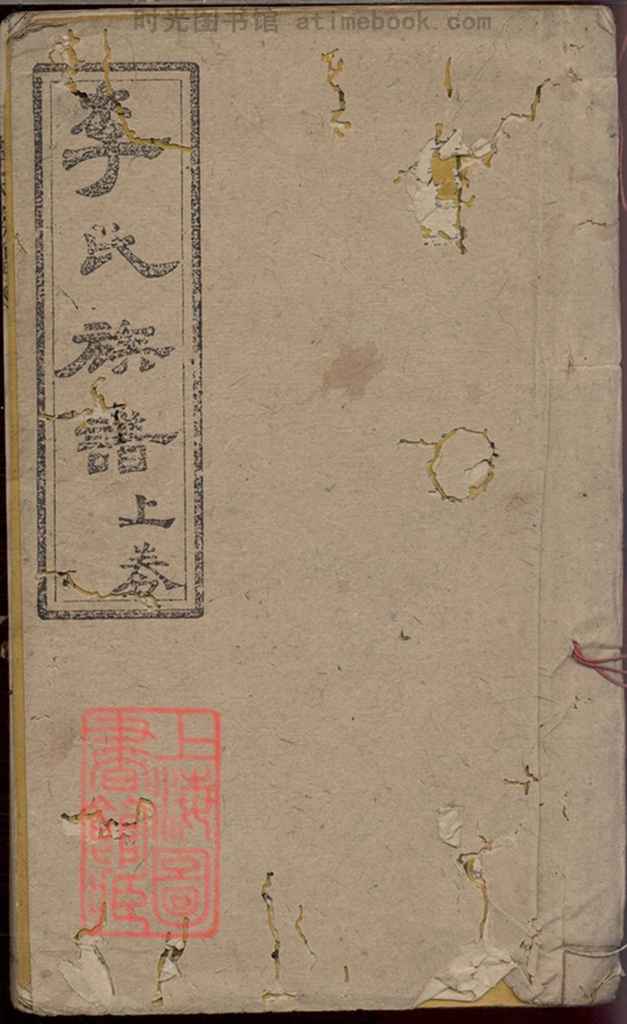 时光图书馆 atimebook.com
李氏族譜上卷
上海圖
書館藏